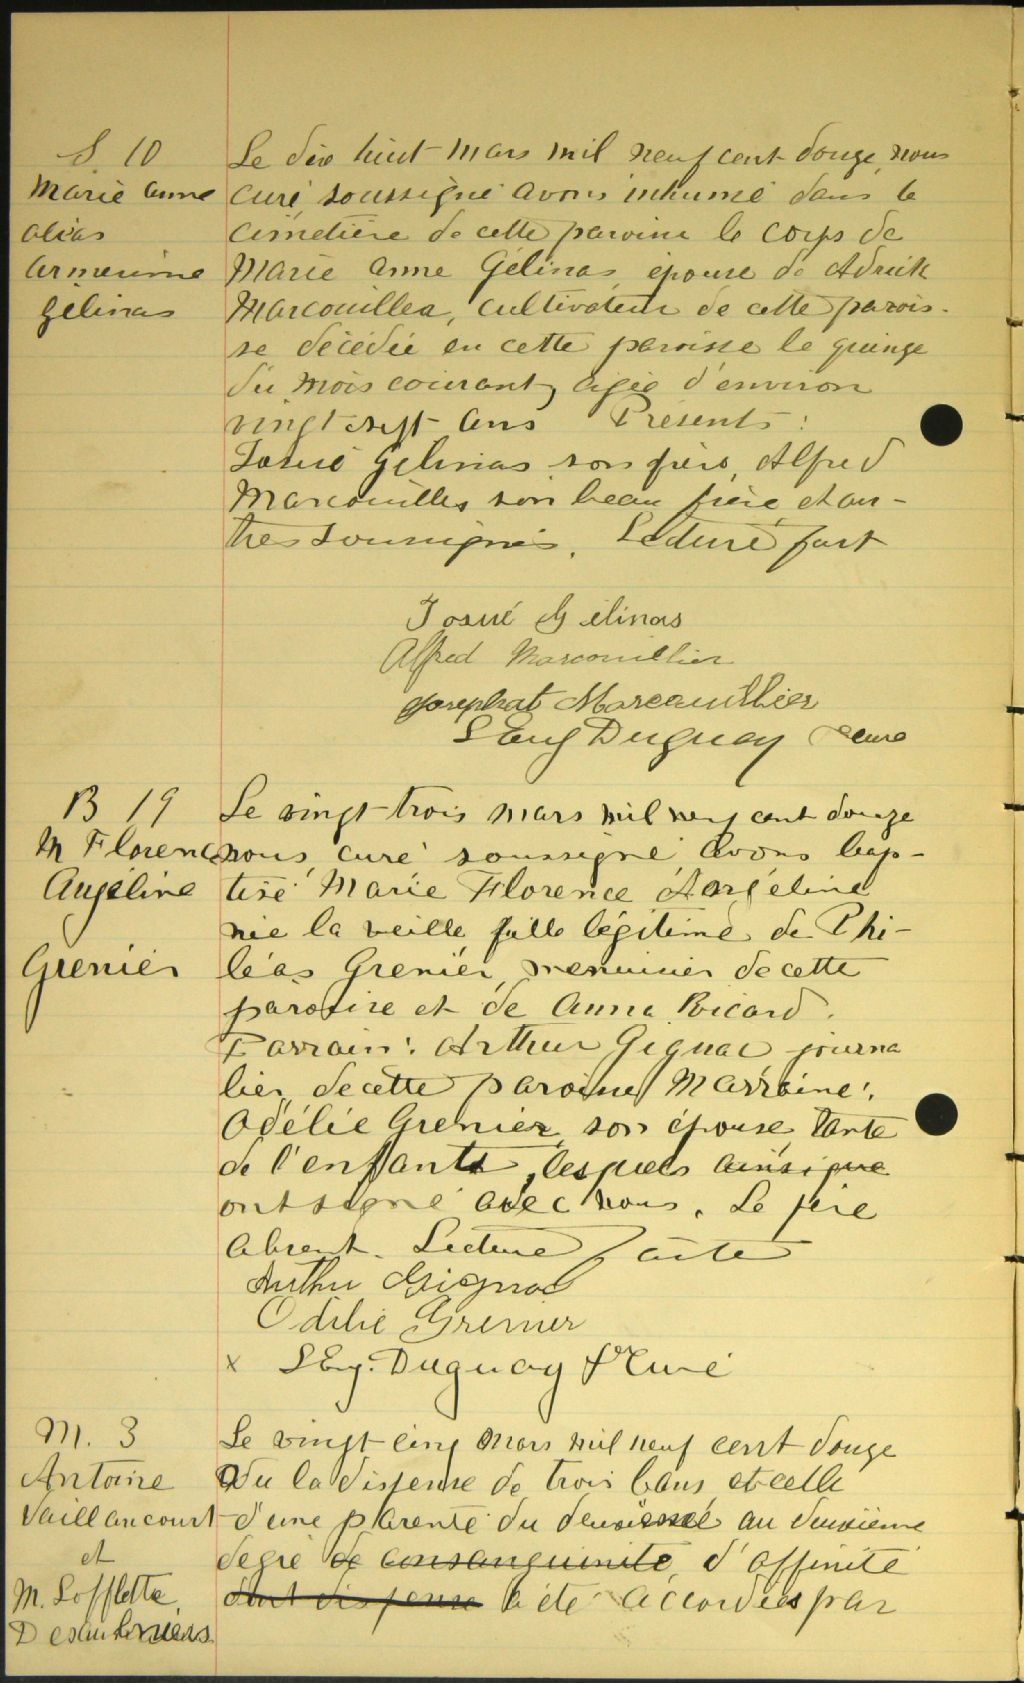 S 10
Marie Anne
alias
Armerine
Gélinas
Le dix huit mars mil neuf cent douze, nous
curé soussigné avons inhumé dans le
cimetière de cette paroisse le corps de
Marie Anne Gélinas, épouse de
Marcouiller, cultivateur de cette parois-
se décédée en cette paroisse le quinze
du mois courant, agée d'environ
vingt sept ans Présents:
Josué Gélinas son père, Alfred
Marcouiller son beau frère, et au-
tres soussignés. Lecture fait
Josué Gélinas
Alfred Marcouillier
Josephat Marcouillier
S Eug Duguay Ptre curé
B 19
M Florence
Angéline
Grenier
Le vingt-trois mars mil neuf cent douze
nous, curé soussigné avons bap-
tisé Marie Florence Angéline
née la veille fille légitime de Phi-
léas Grenier, menuisier de cette
paroisse et de Anna Ricard.
Parrain: Arthur Gignac journa
lier, de cette paroisse, Marraine:
Odélie Grenier, son épouse, tante
de l'enfant, lesquels ainsi que
ont signé avec nous. Le père
absent. Lecture faite
Arthur Gignac
Odilie Grenier
x S Eug. Duguay Ptre Curé
M. 3
Antoine
Vaillancourt
et
M.
Desaulniers
Le vingt cinq mars mil neuf cent douze
Vu la dispense de trois bans et celle
d'une parenté du deuxième au deuxième
degré de consanguinité, d'affinité
dont dispense a été accordées par